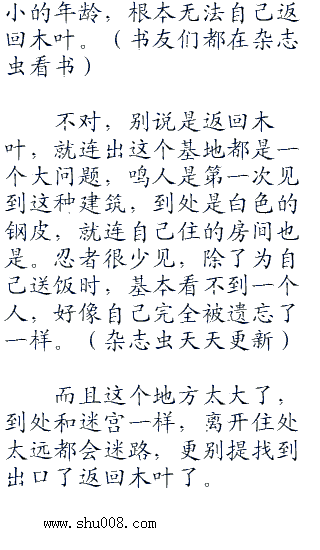 小的年龄，根本无法自己返
回木叶。（书友们都在杂志
虫看书）
不对，别说是返回木
叶，就连出这个基地都是一
个大问题，鸣人是第一次见
到这种建筑，到处是白色的
钢皮，就连自己住的房间也
是。忍者很少见，除了为自
己送饭时，基本看不到一个
人，好像自己完全被遗忘了
一样。（杂志虫天天更新）
而且这个地方太大了，
到处和迷宫一样，离开住处
太远都会迷路，更别提找到
出口了返回木叶了。
www.shu008.com